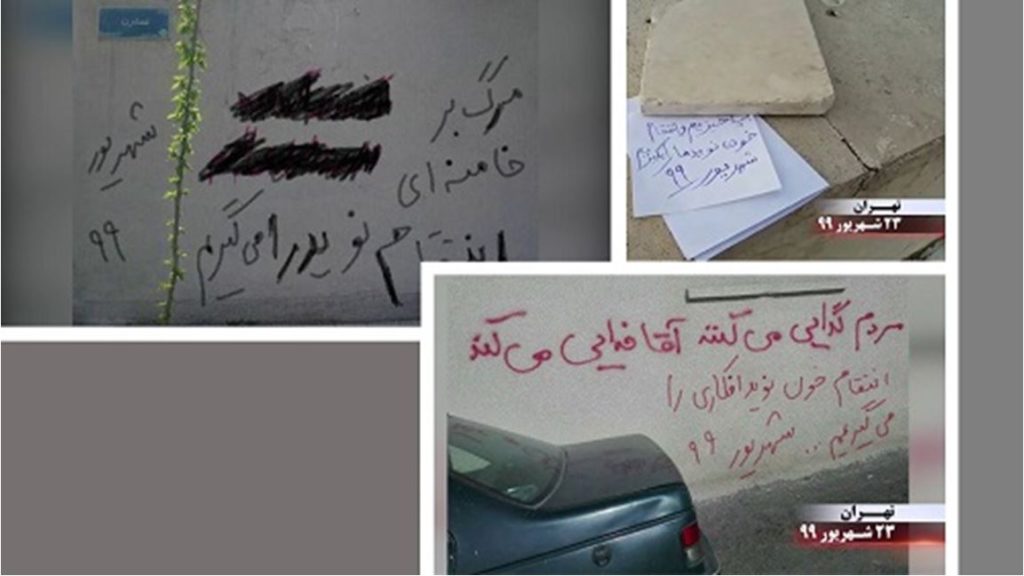 مرگ بر
خامنه ای
انتقام نوید را می گیریم
شهریور
۹۹
و انتقام
خون نویدها را میگیریم
شهریور ۹۹
تهران
۲۳ شهریور ۹۹
مردم گدایی می کنند آقا خدایی می کند
انتقام خون نوید افکاری را
می گیریم .. شهریور ۹۹
تهران
۲۳ شهریور ۹۹